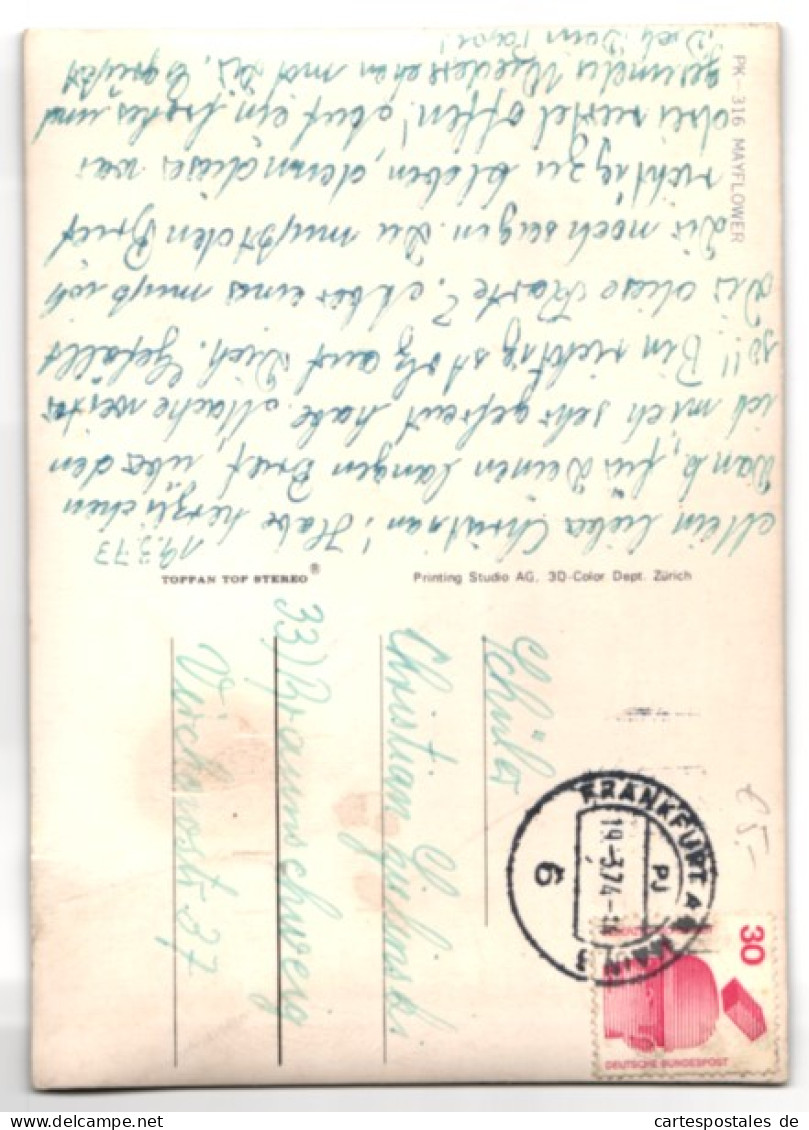 19.3.73
Mein lieber Christian! Habe herzlichen
Dank, für Deinen langen Brief, über den
ich mich sehr gefreut habe. Mache weiter
so!! Bin richtig stolz auf Dich. Gefällt
Dir diese Karte? Aber eins muß ich
Dir noch sagen. Du mußt den Brief
richtig zu kleben, denn dieser war
offen! Auf ein frohes und
gesundes Wiedersehen
Dich Dein
PK—316 MAYFLOWER
TOPPAN TOP STEREO®
Printing Studio AG, 3D-Color Dept. Zürich
Schüler
Christian
33) Braunschweig
Virchowstr. 37
FRANKFURT AM MAIN
19.-3.74
PJ
6
30
DEUTSCHE BUNDESPOST
€5,-
cartespostales de